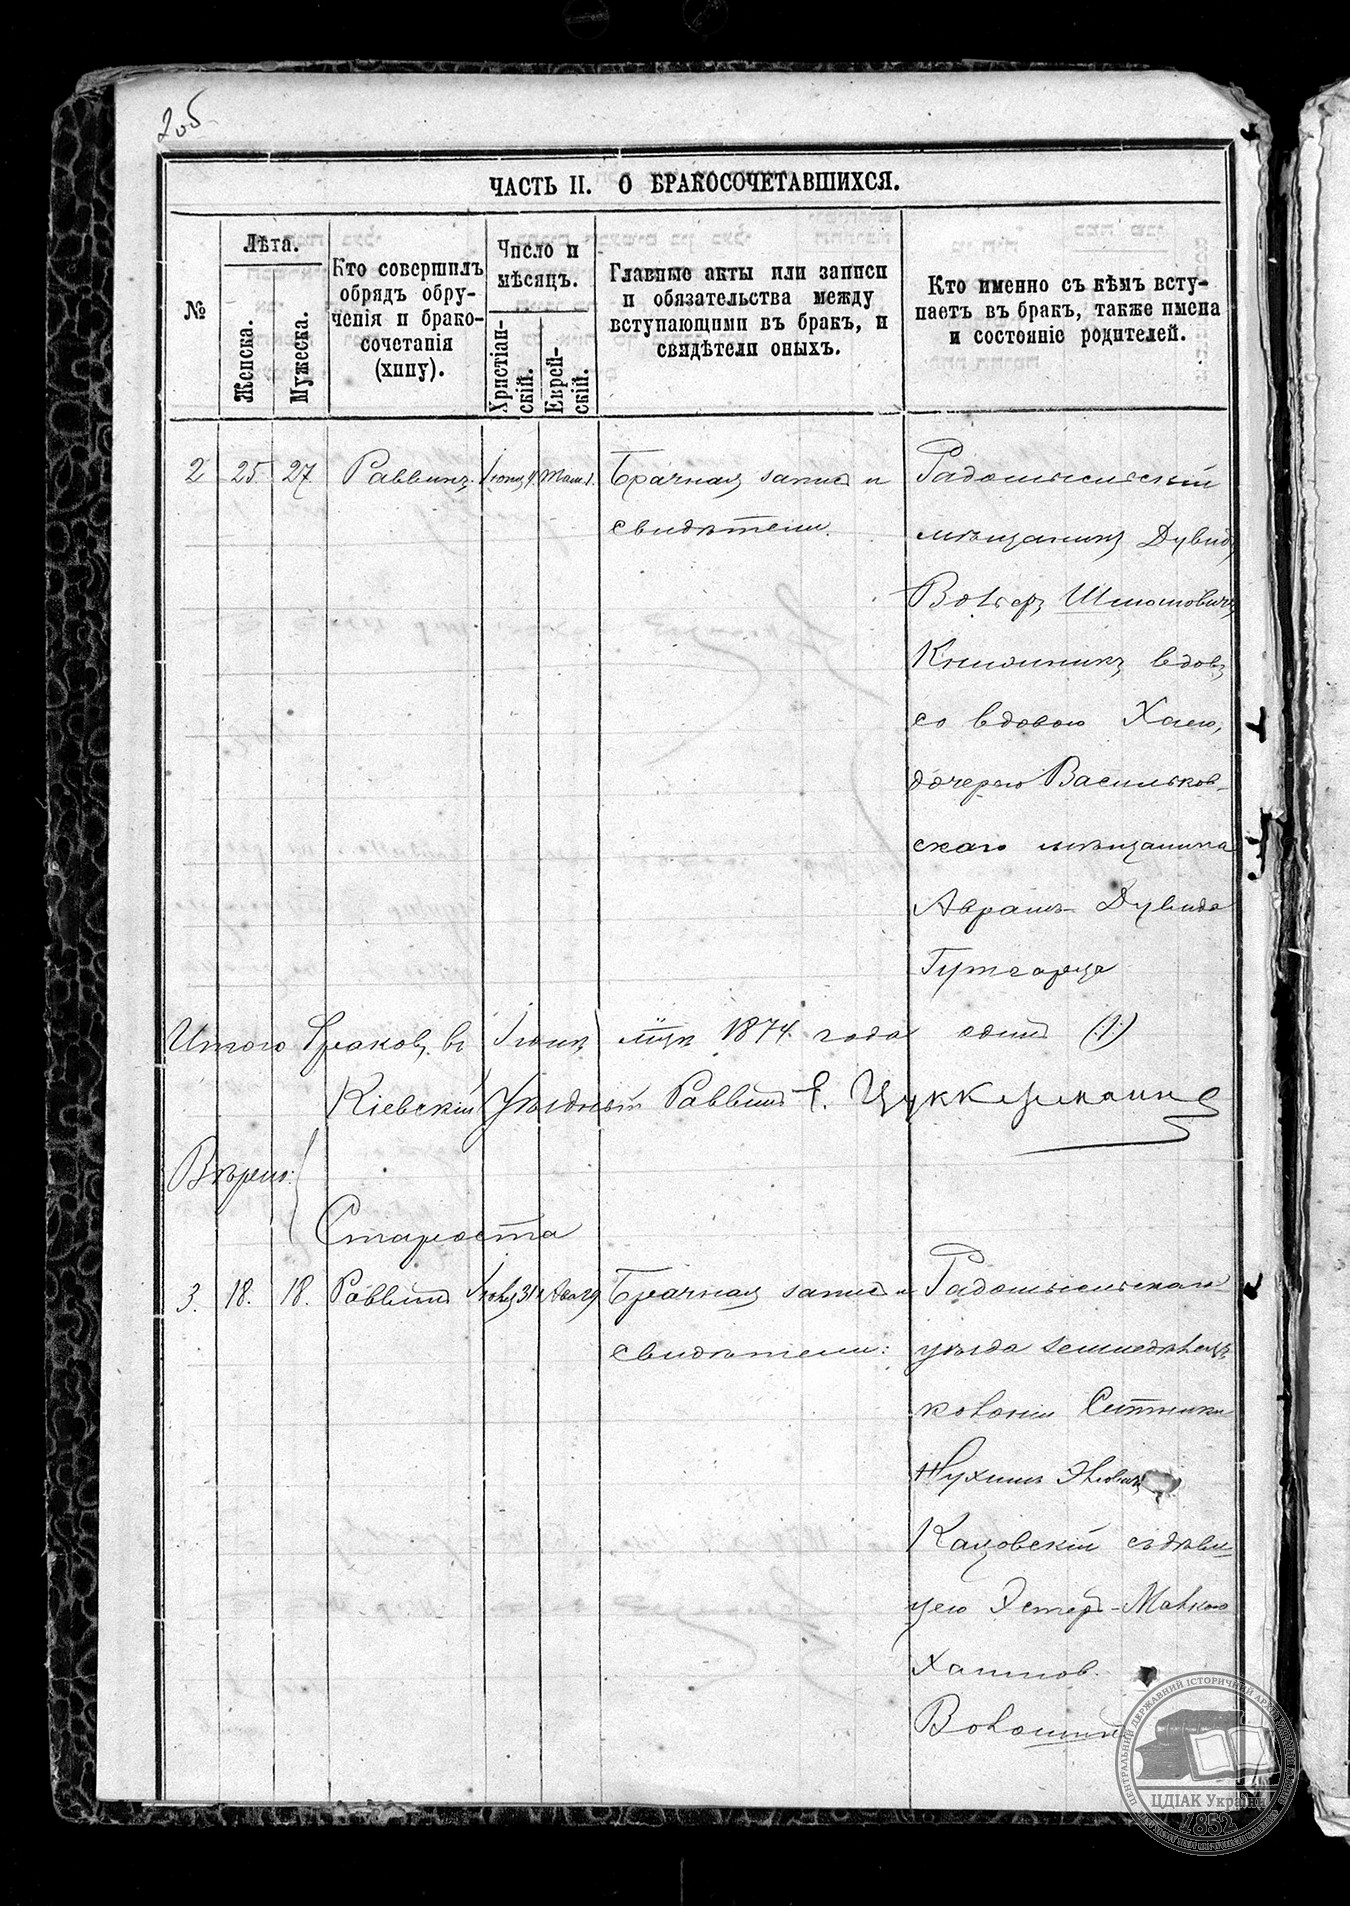 205
ЧАСТЬ II. О БРАКОСОЧЕТАВШИХСЯ.
№
Лѣта.
Женска.
Мужеска.
Кто совершилъ
обрядъ обру-
ченія и брако-
сочетанія
(хипу).
Число и
мѣсяцъ.
Христіан-
скій.
Еврей-
скій.
Главные акты или записи
и обязательства между
вступающими въ бракъ, и
свидѣтели оныхъ.
Кто именно съ кѣмъ всту-
паетъ въ бракъ, также имена
и состояніе родителей.
2 25 27 Раввинъ Іюня 4. Брачная запись и
свидѣтели.
Радомысльскій
мѣщанинъ Дувидъ
Вольеръ Шмоловичъ
вдов.
со вдовою Хаею,
дочерью Васильков-
скаго мѣщанина
Аврамъ Дувида
Гутгарца
Итого браковъ въ Іюнѣ мцѣ 1874 года одинъ (1)
Кіевскій Уѣздный Раввинъ Е. Цуккерманъ
Вѣрно:
Староста
3. 18. 18. Раввинъ 31 Брачная запись и
свидѣтели:
Радомысльскаго
уѣзда земледѣльч.
колоніи Ситняки
Нухимъ Эльевичъ
Кацовскій съ дѣви-
цею Эстеръ-Малкою
Хаимов.
Волошин
ЦЕНТРАЛЬНИЙ ДЕРЖАВНИЙ ІСТОРИЧНИЙ АРХІВ УКРАЇНИ
ЦДІАК України
1852